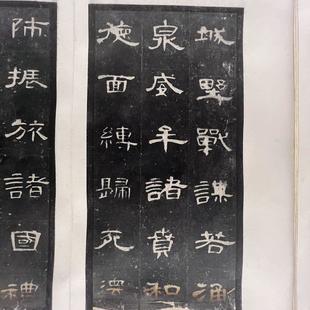 城墅戰謀若涌
泉威牟諸賁和
德面縛歸死還
師振旅諸國禮